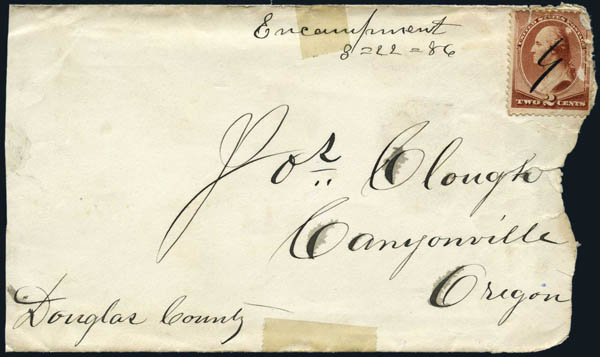 Encampment
8=22=86
UNITED STATES POSTAGE
TWO 2 CENTS
Jos. Clough
Canyonville
Oregon
Douglas County